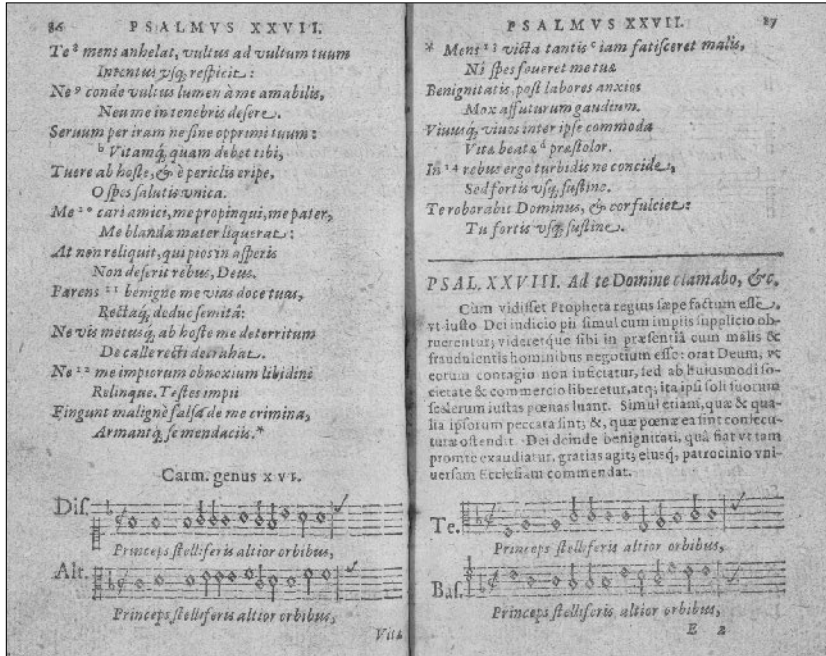 86 PSALMVS XXVII.
Te ⁸ mens anhelat, vultus ad vultum tuum
Intentus vsq; respicit:
Ne ⁹ conde vultus lumen à me amabilis,
Neu me in tenebris desere.
Seruum per iram ne sine opprimi tuum:
ᵇ Vitamq; quam debet tibi,
Tuere ab hoste, & è periclis eripe,
O spes salutis vnica.
Me ¹⁰ cari amici, me propinqui, me pater,
Me blanda mater liquerat:
At non reliquit, qui pios in asperis
Non deserit rebus, Deus.
Parens ¹¹ benigne me vias doce tuas,
Rectaq; deduc semitâ:
Ne vis metusq; ab hoste me deterritum
De calle recti deturbat.
Ne ¹² me impiorum obnoxium libidini
Relinque. Testes impii
Fingunt malignè falsa de me crimina,
Armantq; se mendaciis.*
Carm. genus XVI.
Dis.
Princeps stelliferis altior orbibus,
Alt.
Princeps stelliferis altior orbibus,
Vita
PSALMVS XXVII. 87
* Mens ¹³ victa tantis ᶜ iam fatisceret malis,
Ni spes foueret me tua
Benignitatis, post labores anxios
Mox affuturum gaudium.
Viuusq; viuos inter ipse commoda
Vitæ beatæ ᵈ præstolor.
In ¹⁴ rebus ergo turbidis ne concide,
Sed fortis vsq; sustine.
Te roborabit Dominus, & cor fulciet:
Tu fortis vsq; sustine.
PSAL. XXVIII. Ad te Domine clamabo, &c.
Cùm vidisset Propheta regius sæpe factum esse,
vt iusto Dei iudicio pii simul cum impiis supplicio ob-
ruerentur; videretque sibi in præsentiâ cum malis &
fraudulentis hominibus negotium esse: orat Deum, vt
eorum contagio non inficiatur, sed ab huiusmodi so-
cietate & commercio liberetur, atq; ita ipsi soli suorum
scelerum iustas pœnas luant. Simul etiam, quæ & qua-
lia ipsorum peccata sint; &, quæ pœnæ ea sint consecu-
turæ ostendit. Dei deinde benignitati, quâ fiat vt tam
promte exaudiatur, gratias agit; eiusq; patrocinio vni-
uersam Ecclesiam commendat.
Te.
Princeps stelliferis altior orbibus,
Bas.
Princeps stelliferis altior orbibus,
E 2